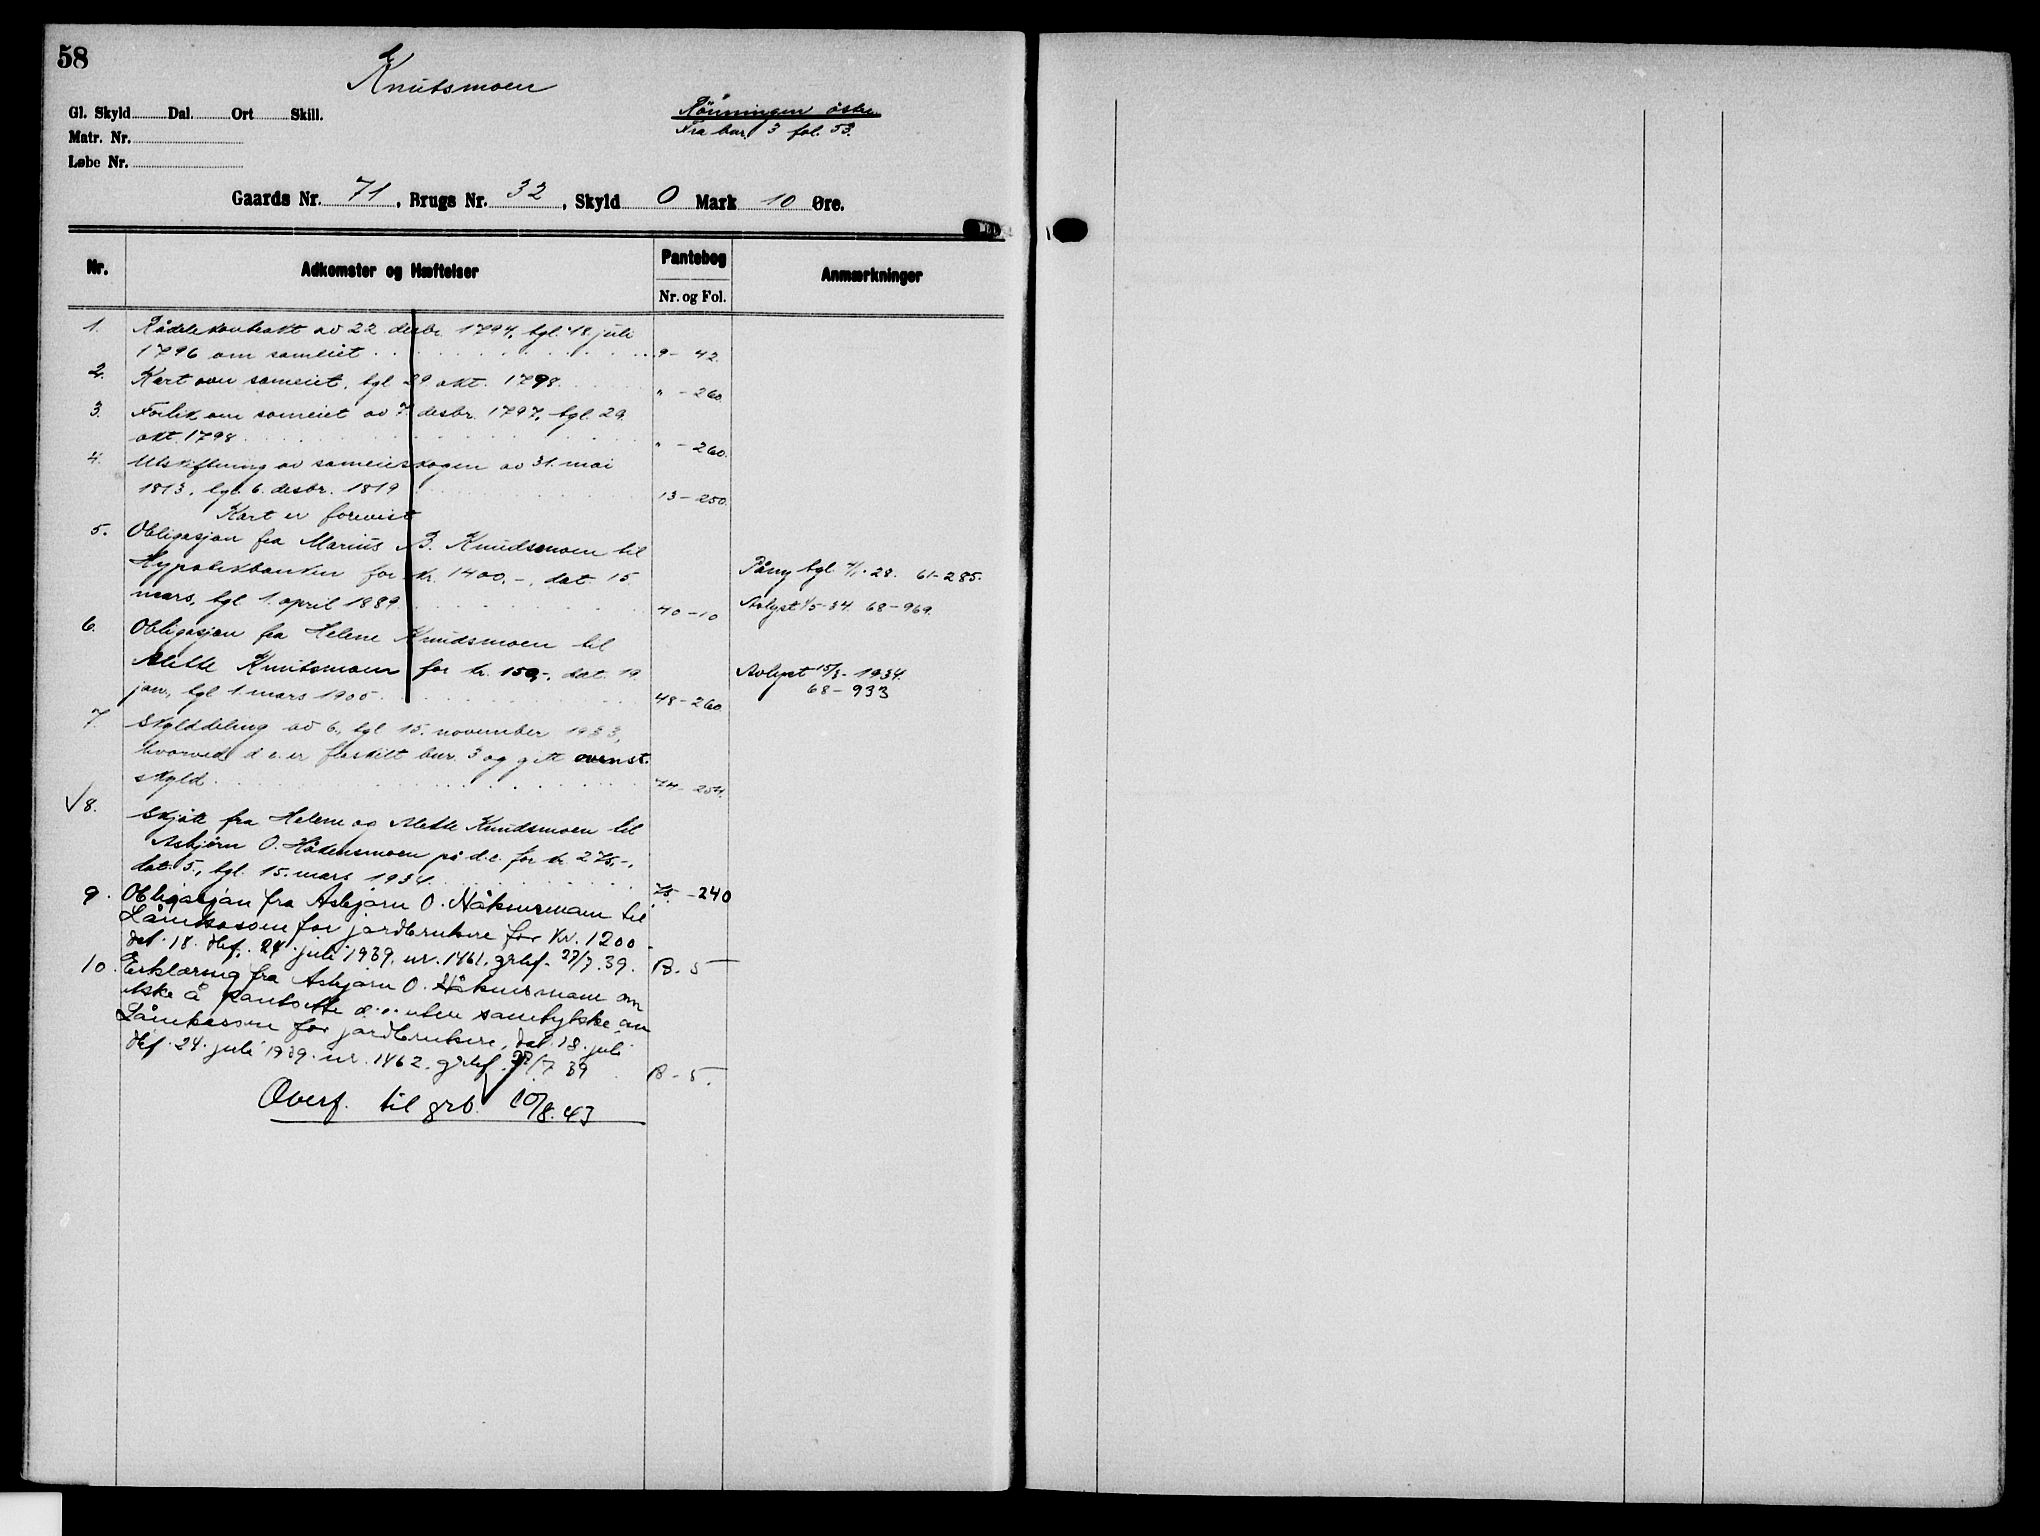 58
Knutsmoen
Gl. Skyld Dal. Ort Skill.
Rönningen östre
Matr. Nr.
Fra bnr. 3 fol. 53.
Løbe Nr.
Gaards Nr. 71, Brugs Nr. 32, Skyld 0 Mark 10 Øre.
Nr. Adkomster og Hæftelser Pantebog Anmærkninger
Nr. og Fol.
1. av 22 desbr. 1794, tgl. 18. juli
1796 om sameiet 9 - 42.
2. Kart over sameiet, tgl 29 okt. 1798. " - 260.
3. Forlik om sameiet av 7. desbr. 1797, tgl. 29.
okt. 1798 " - 260.
4. Utskiftning av sameieskogen av 31. mai
1813, tgl. 6. desbr. 1819 13 - 250.
Kart er forevist
5. Obligasjon fra Marius B. Knudsmoen til
Hypotekbanken for kr. 1400,-, dat. 15. Påny tgl. 4/1-28. 61-285.
mars, tgl 1. april 1889 40 - 10 Avlyst 1/5-34. 68-969.
6. Obligasjon fra Helene Knudsmoen til
Mette Knutsmoen for kr. 150,-, dat. 19 Avlyst 15/3-1934.
jan., tgl 1. mars 1905. 48 - 260 68-933
7. Skylddeling av 6., tgl 15. november 1933,
hvorved d.e. er fraskilt bnr. 3 og gitt ovenst.
skyld. 74 - 254.
√ 8. Skjöte fra Helene og Mette Knudsmoen til
Asbjörn O. Håkensmoen på d.e. for kr. 275,-,
dat. 5., tgl. 15. mars 1934. 75 - 240
9. Obligasjon fra Asbjørn O. Håkensmoen til
Lånekassen for jordbrukere for Kr. 1200.-
dat. 18. dbf. 24. juli 1939. nr. 1461. grbf. 27/7.39. B. 5
10. Erklæring fra Asbjørn O. Håkensmoen om
ikke å pantsette d.e. uten samtykke av
Lånekassen for jordbrukere, dat. 18. juli
dbf. 24. juli 1939. nr. 1462. grbf. 27/7 39 B - 5.
Overf. til grb. 10/8.43